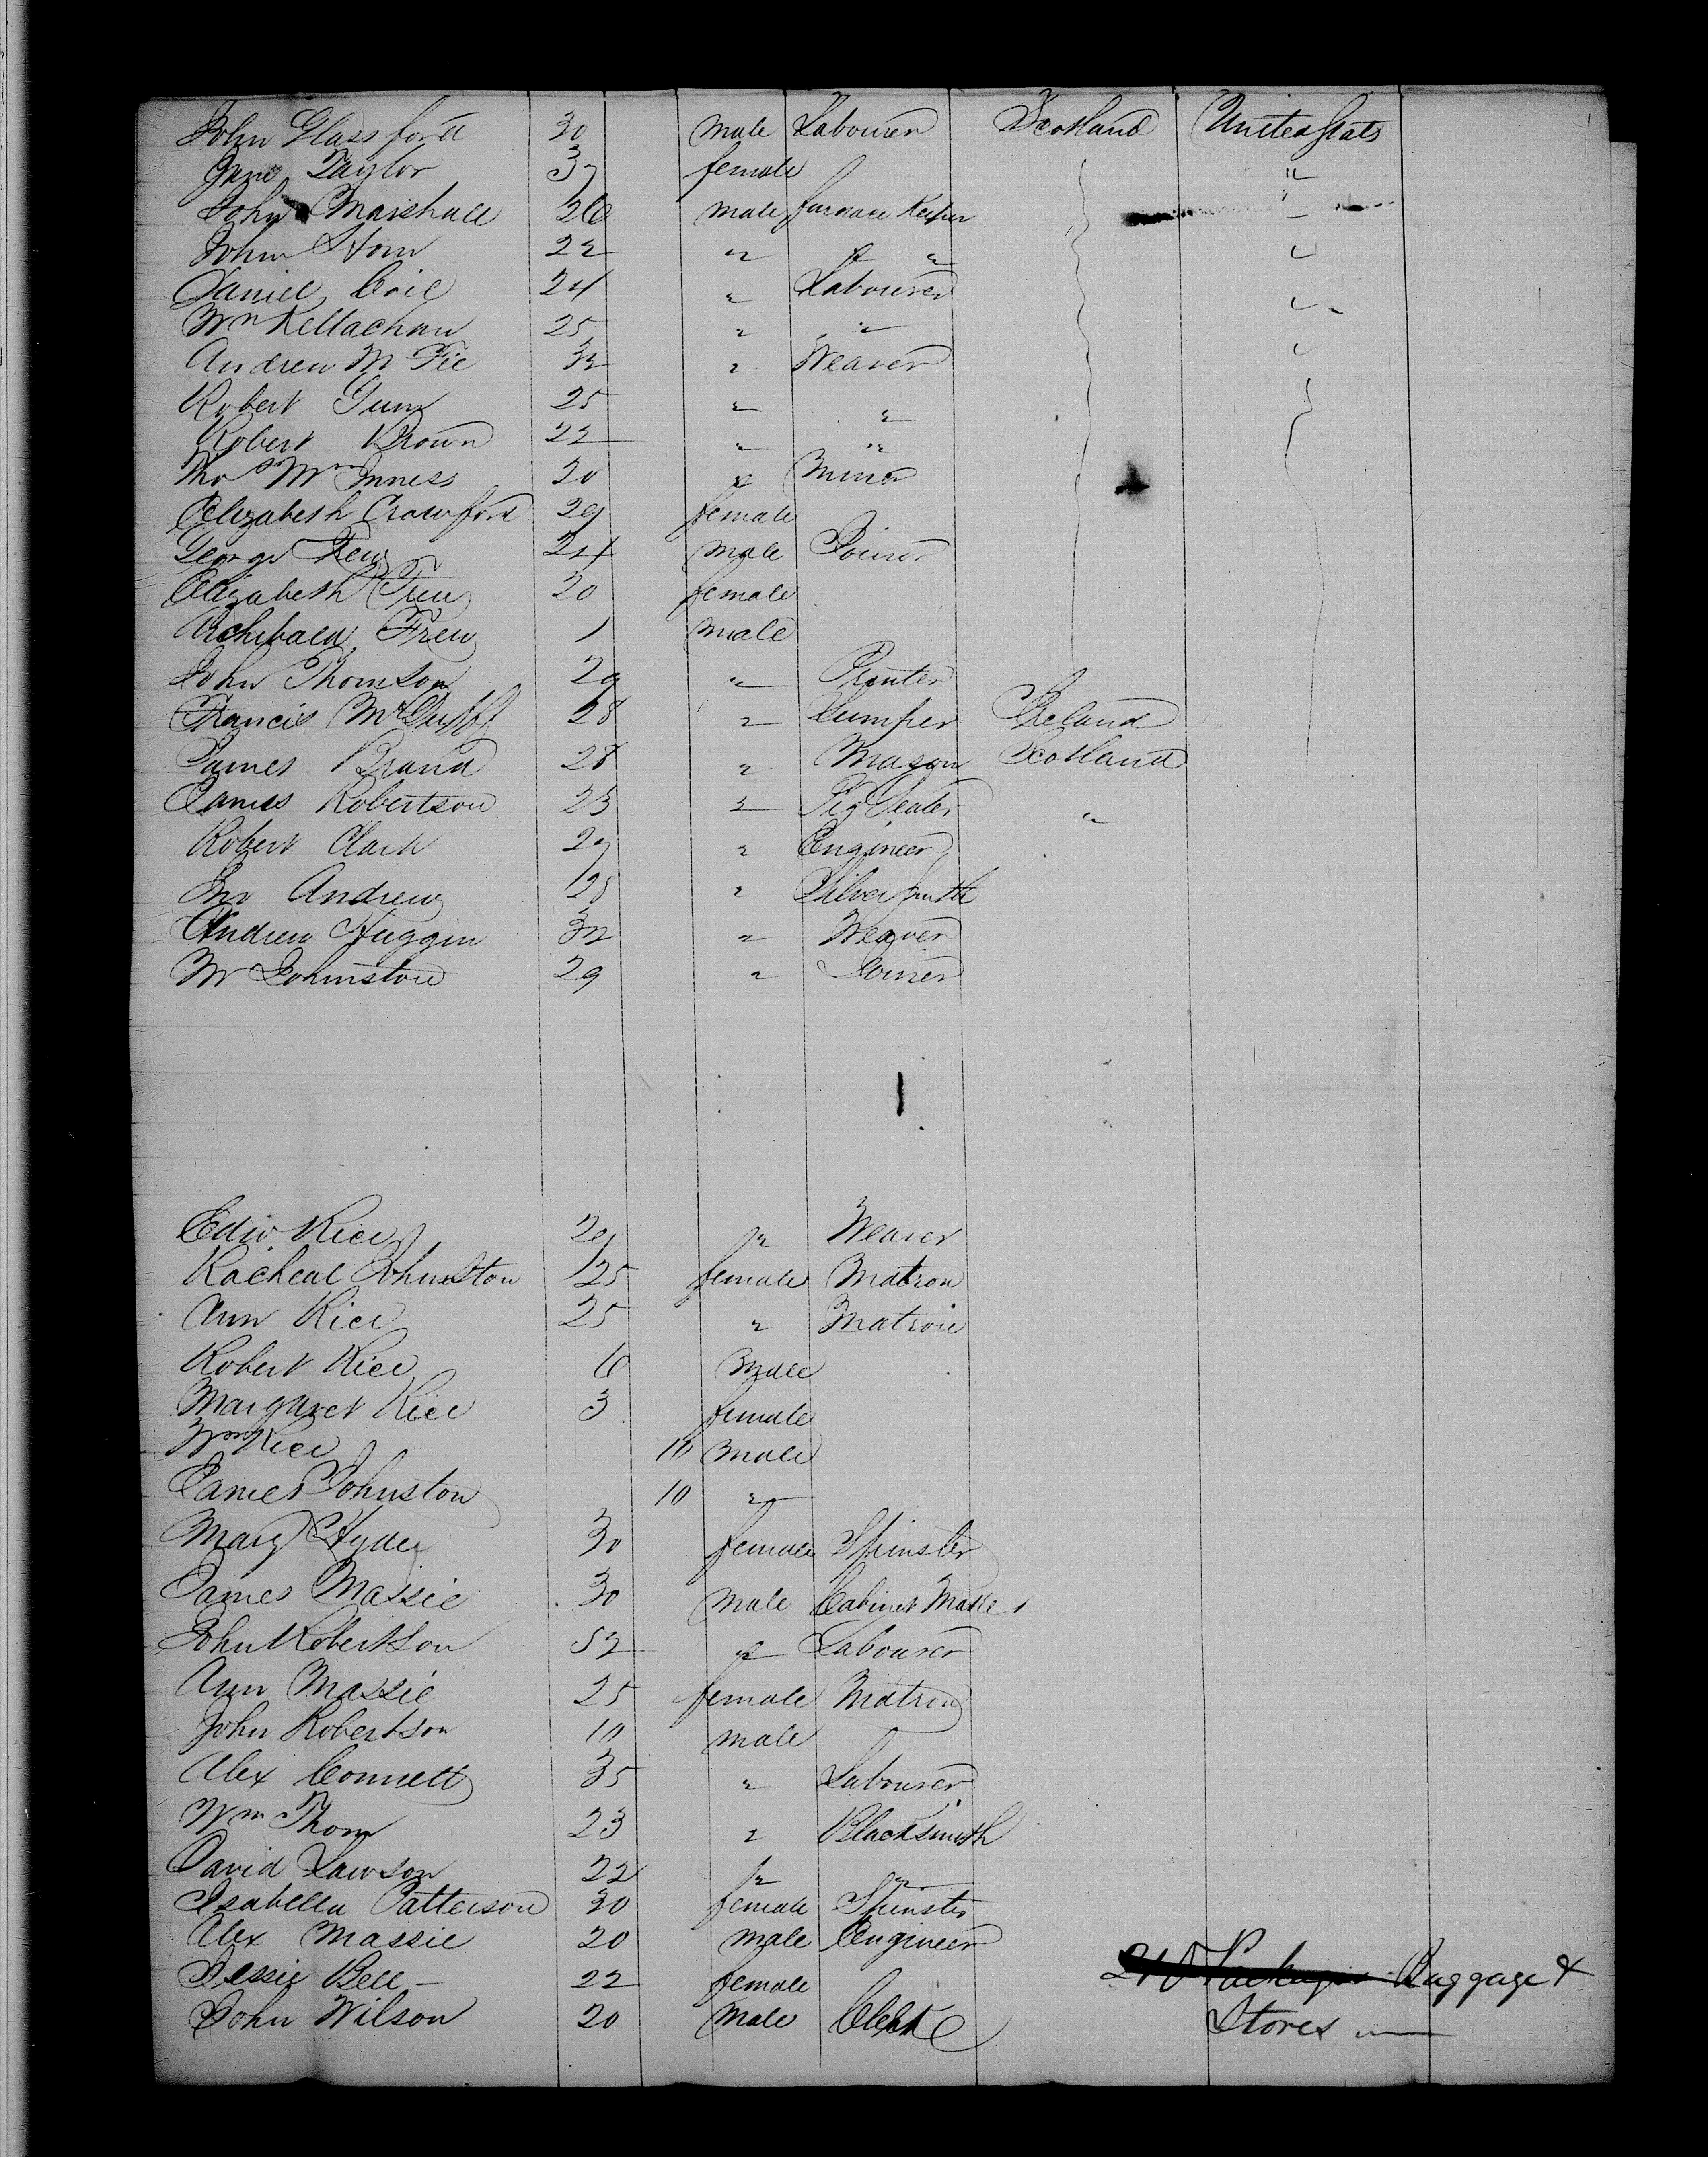 John Glassford 30 male Labourer Scotland United Stats
Jane Taylor 37 female "
John Marshall 26 male furnace Keeper "
John 22 " " " "
Daniel 24 " Labourer "
Wm Kellachan 25 " " "
Andrew Mc Fie 32 " Weaver "
Robert Gunn 25 " "
Robert Brown 22 " "
Thos Mc Inness 20 " Miner
Elizabeth Crawford 29 female
George Frew 24 male Joiner
Elizabeth Frew 20 female
Archibald Frew 1 male
John Thomson 29 " Printer
Francis McDuff 28 " Lumper Ireland
James Brand 28 " Mason Scotland
James Robertson 23 " Pig Dealer "
Robert Clark 29 " Engineer
Jno Andrew 25 " Silver Smith
Andrew Huggin 32 " Weaver
Wm Johnston 29 " Joiner
Edw Rice 29 " Weaver
Racheal Johnston 25 female Matron
Ann Rice 25 " Matron
Robert Rice 6 male
Margaret Rice 3 female
Wm Rice 10 male
James Johnston 10 "
Mary 30 female Spinster
James Massie 30 male Cabinet Maker
John Robertson 52 " Labourer
Ann Massie 25 female Matron
John Robertson 10 male
Alex Connell 35 " Labourer
Wm Thom 23 " Blacksmith
David Lawson 22 " "
Isabella Patterson 30 female Spinster
Alex Massie 20 male Engineer
Jessie Bell - 22 female
John Wilson 20 male Clerk
Baggage &
Stores